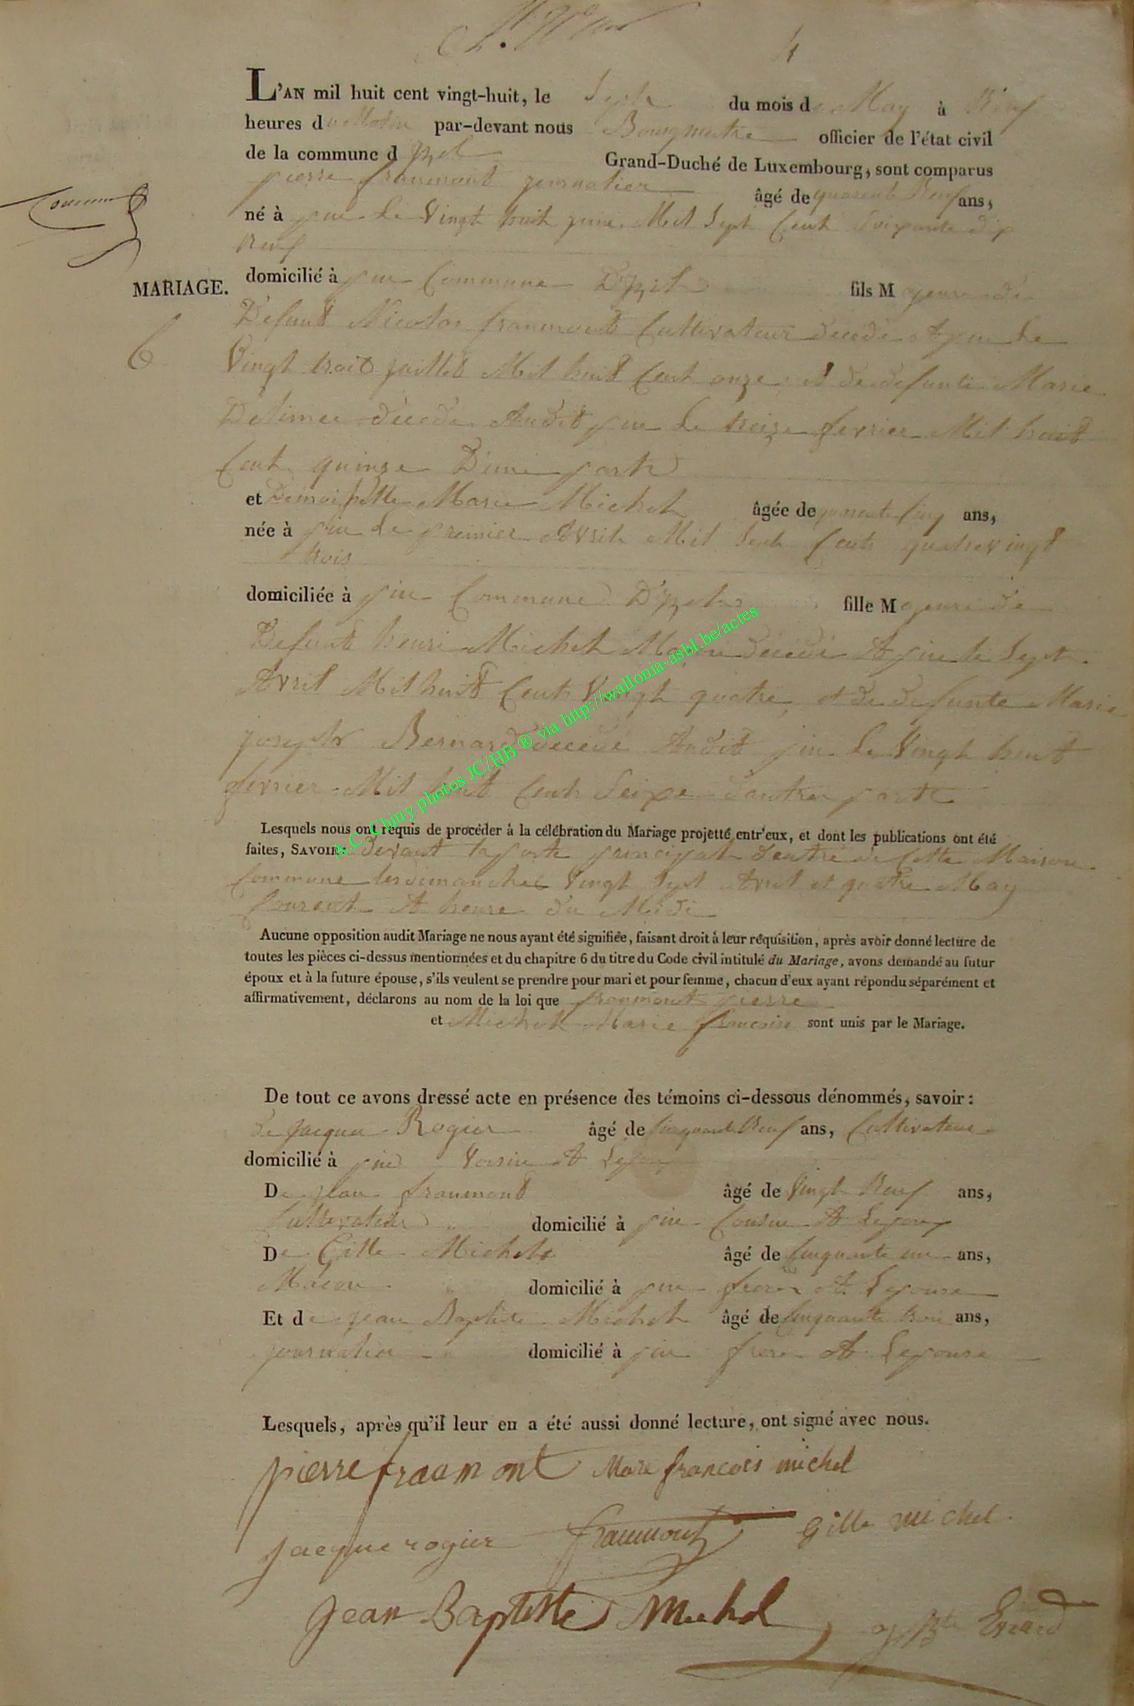 4
L'AN mil huit cent vingt-huit, le Sept du mois de May à Neuf
heures du Matin par-devant nous Bourgmestre officier de l'état civil
de la commune d'Izel Grand-Duché de Luxembourg, sont comparus
pierre fraumont journalier âgé de quarente Neuf ans,
né à pin Le Vingt huit juin Mil Sept Cent Soixante dix
Neuf
MARIAGE.
6
domicilié à pin Commune D'Izel fils Majeur de
Défunt Nicolas fraumont Cultivateur décédé A pin Le
Vingt trois juillet Mil huit Cent onze et de defunte Marie
décédé Audit pin Le treize fevrier Mil huit
Cent quinze D'une part
et Demoiselle Marie Michel âgée de quarente Cinq ans,
née à pin Le premier Avril Mil Sept Cent quatrevingt
trois
domiciliée à pin Commune D'Izel fille Majeure de
Defunt henri Michel décédé A pin le Sept
Avril Mil huit Cent Vingt quatre et de defunte Marie
joseph Bernard décédé Audit pin Le Vingt huit
fevrier Mil huit Cent Seize d'autre part
Lesquels nous ont requis de procéder à la célébration du Mariage projetté entr'eux, et dont les publications ont été
faites, SAVOIR: Devant la porte principale d'entré de Cette Maison
Commune les dimanches Vingt Sept Avril et quatre May
Courant A heure du Midi
Aucune opposition audit Mariage ne nous ayant été signifiée, faisant droit à leur réquisition, après avoir donné lecture de
toutes les pièces ci-dessus mentionnées et du chapitre 6 du titre du Code civil intitulé du Mariage, avons demandé au futur
époux et à la future épouse, s'ils veulent se prendre pour mari et pour femme, chacun d'eux ayant répondu séparément et
affirmativement, déclarons au nom de la loi que fraumont pierre
et Michel Marie françoise sont unis par le Mariage.
De tout ce avons dressé acte en présence des témoins ci-dessous dénommés, savoir:
de jacque Rogier âgé de Cinquante Neuf ans, Cultivateur
domicilié à pin Voisin A Lepoux
De jean fraumont âgé de Vingt Neuf ans,
Cultivateur domicilié à pin Cousin A Lepoux
De Gille Michel âgé de Cinquante un ans,
Macon domicilié à pin frere A Lepouse
Et de jean Baptiste Michel âgé de Cinquante trois ans,
journalier domicilié à pin frere A Lepouse
Lesquels, après qu'il leur en a été aussi donné lecture, ont signé avec nous.
pierre fraumont Marie françois michel
jacque rogier fraumont gille michel
jean Baptiste Michel Evrard
A.C. Chiny photos JC/HB ® via http://wallonia-asbl.be/actes